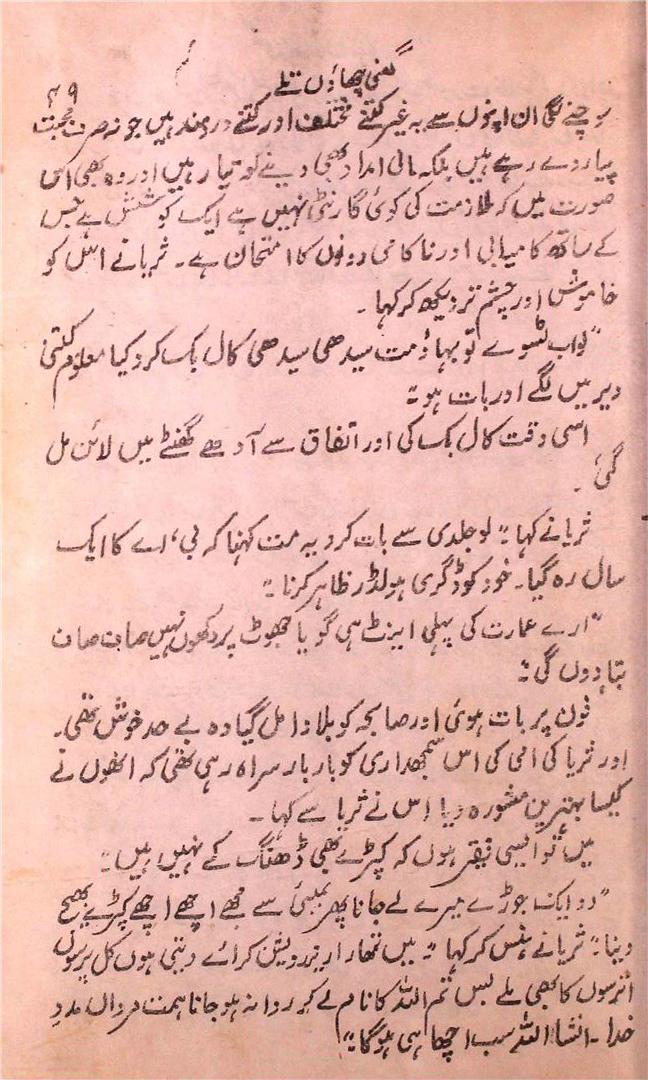 گھنی چھاؤں تلے
۴۹
سوچنے لگی ان اپنوں سے یہ غیر کتنے مختلف اور کتنے دردمند ہیں جو نہ صرف محبت
پیار دے رہے ہیں بلکہ مالی امداد بھی دینے کو تیار ہیں اور وہ بھی اس
صورت میں کہ ملازمت کی کوئی گارنٹی نہیں ہے ایک کوشش ہے جس
کے ساتھ کامیابی اور ناکامی دونوں کا امتحان ہے۔ ثریا نے اس کو
خاموش اور چشم تر دیکھ کر کہا۔
"لو اب ٹسوے تو بہاؤ مت سیدھی سیدھی کال بک کرو کیا معلوم کتنی
دیر میں لگے اور بات ہو"
اسی وقت کال بک کی اور اتفاق سے آدھے گھنٹے میں لائن مل
گئی۔
ثریا نے کہا "لو جلدی سے بات کرو یہ مت کہنا کہ بی، اے کا ایک
سال رہ گیا۔ خود کو ڈگری ہولڈر ظاہر کرنا۔"
"ارے عمارت کی پہلی اینٹ ہی گویا جھوٹ پر رکھوں نہیں صاف صاف
بتا دوں گی"
فون پر بات ہوئی اور صابحہ کو بلاوا مل گیا وہ بے حد خوش تھی۔
اور ثریا کی امی کی اس سمجھداری کو بار بار سراہ رہی تھی کہ انھوں نے
کیسا بہترین مشورہ دیا اس نے ثریا سے کہا۔
میں تو ایسی فیقر ہوں کہ کپڑے بھی ڈھنگ کے نہیں ہیں"
"دو ایک جوڑے میرے لے جانا پھر بمبئی سے مجھے اچھے اچھے کپڑے بھیج
دینا" ثریا نے ہنس کر کہا "میں تمھارا ریزرویشن کرائے دیتی ہوں کل پرسوں
اترسوں کا بھی ملے بس تم اللہ کا نام لے کر روانہ ہو جانا ہمت مرداں مددِ
خدا۔ انشاء اللہ سب اچھا ہی ہوگا"